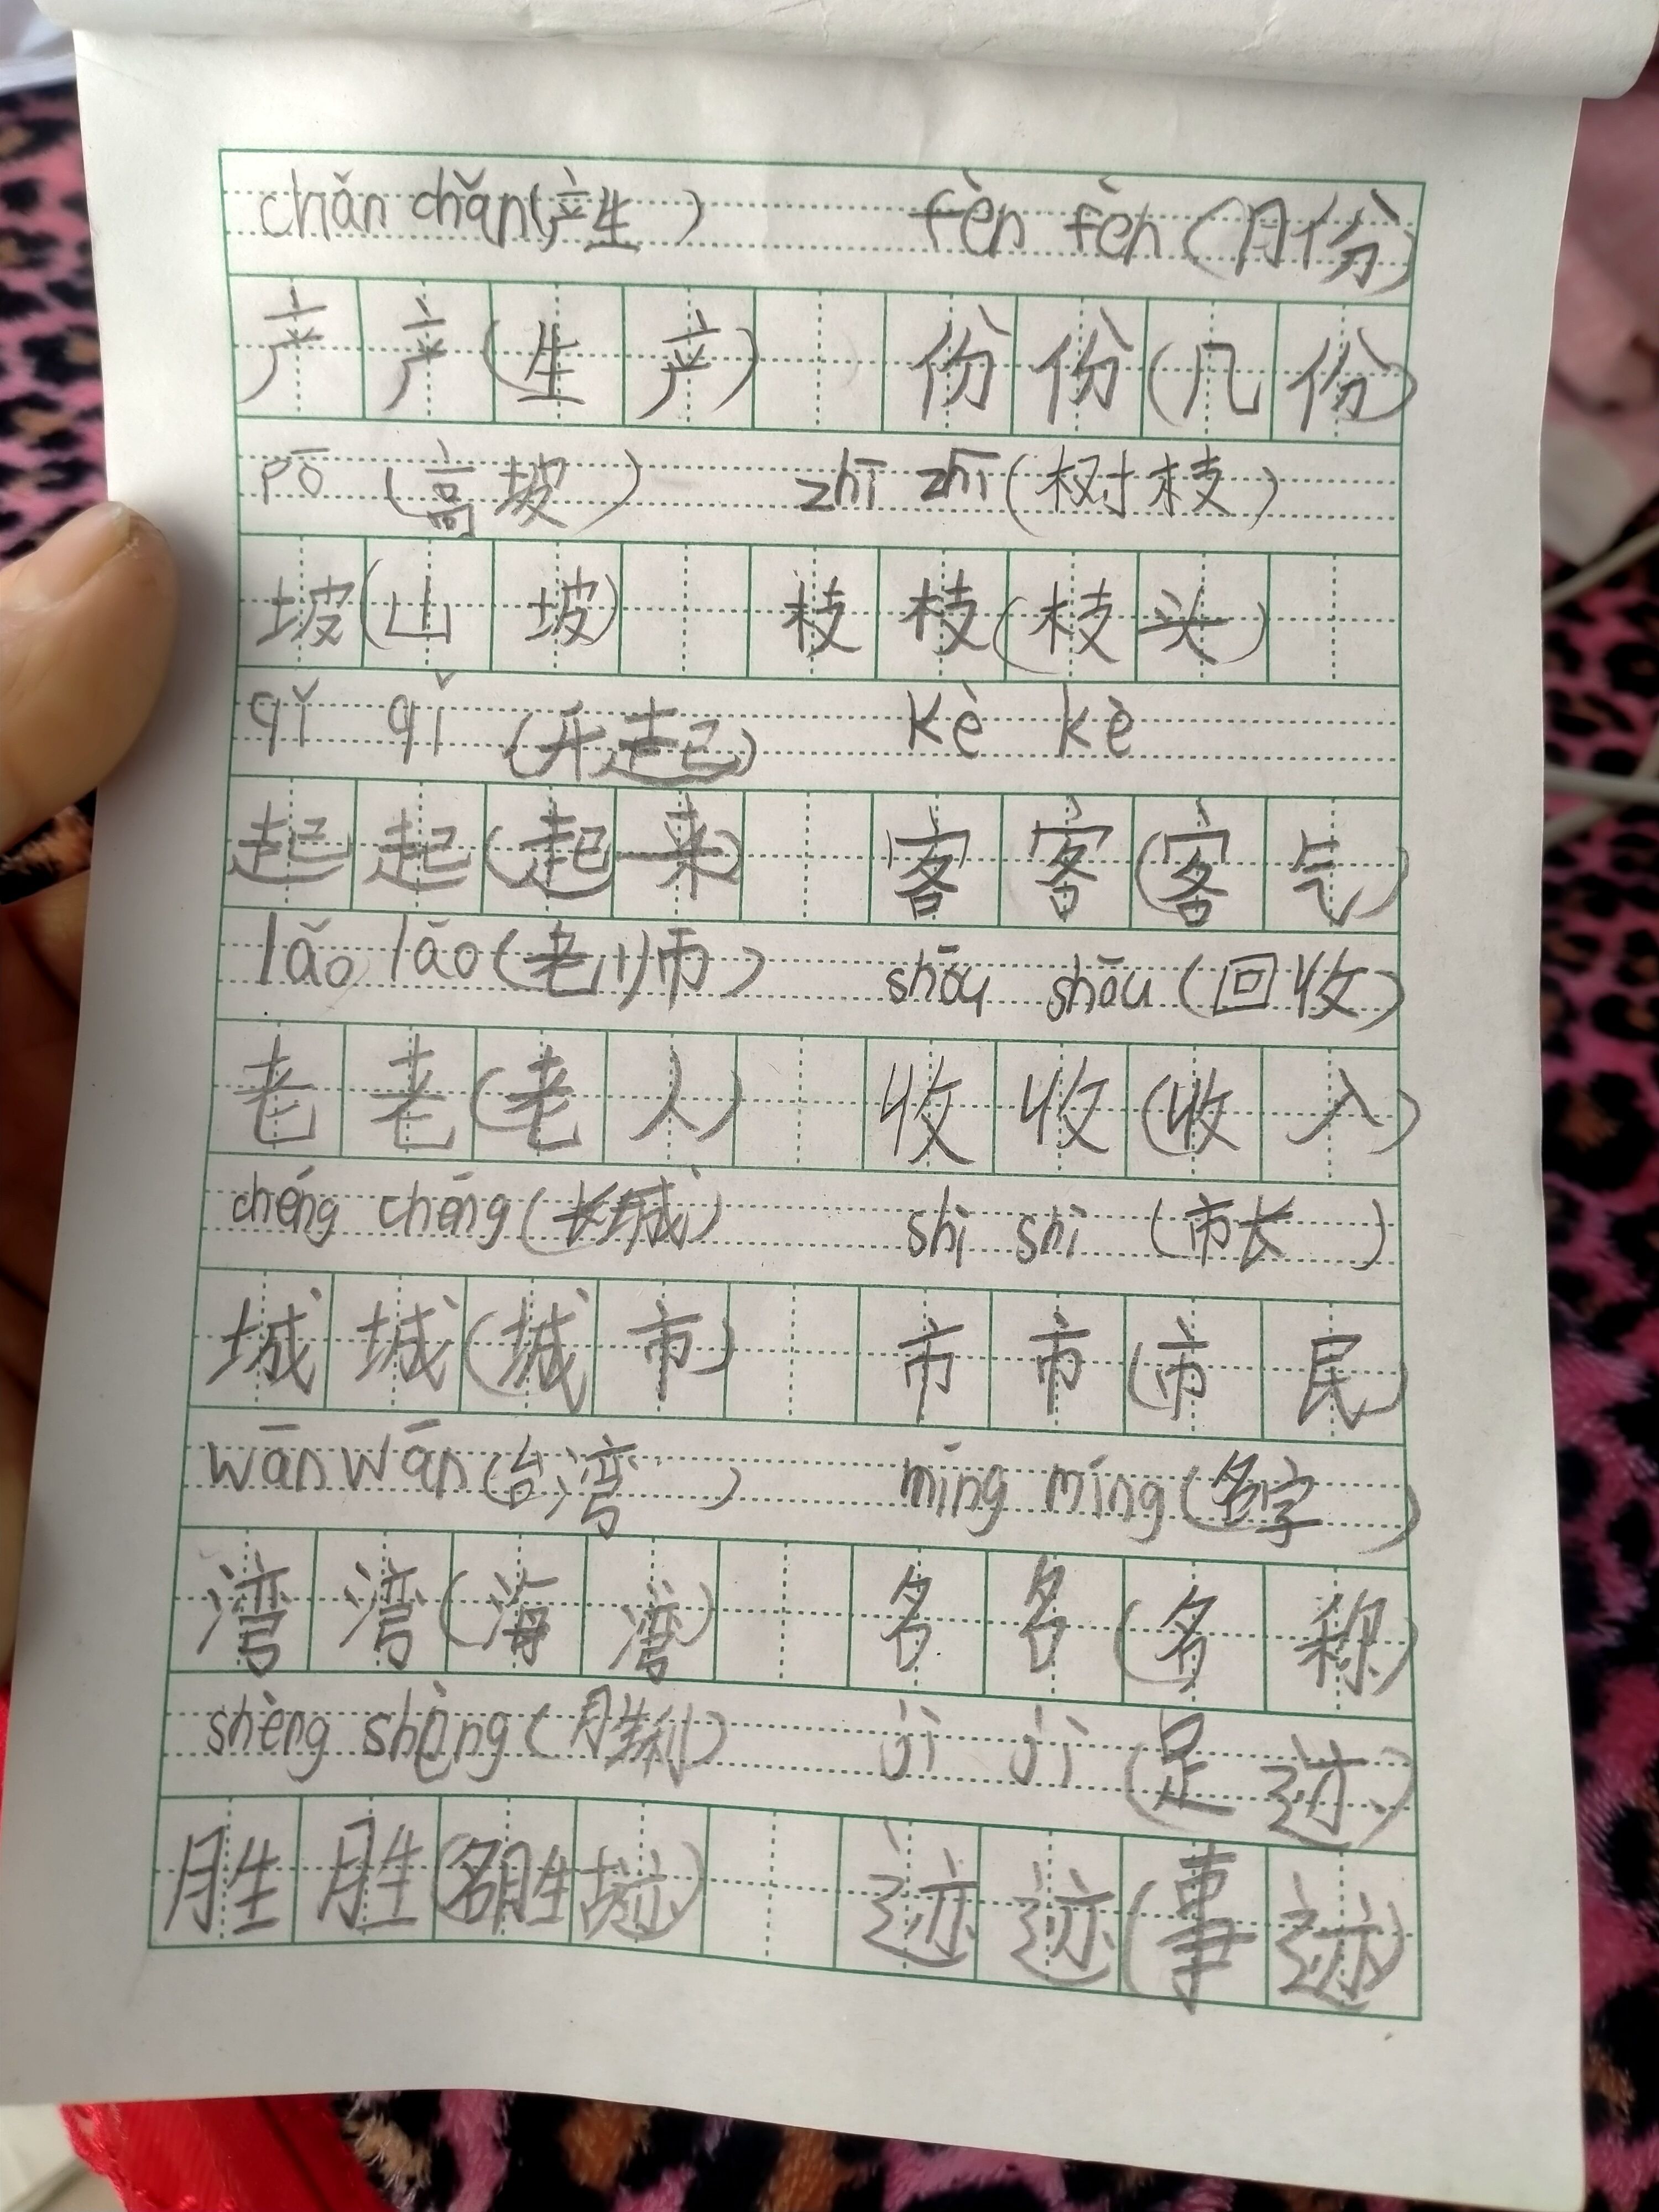 chǎn chǎn (产生) fèn fèn (月份)
产 产 (生 产) 份 份 (几 份)
pō (高坡) zhī zhī (树枝)
坡 (山 坡) 枝 枝 (枝 头)
qǐ qǐ (升起) kè kè
起 起 (起 来) 客 客 (客 气)
lǎo lǎo (老师) shōu shōu (回收)
老 老 (老 人) 收 收 (收 入)
chéng chéng (长城) shì shì (市长)
城 城 (城 市) 市 市 (市 民)
wān wān (台湾) míng míng (名字)
湾 湾 (海 湾) 名 名 (名 称)
shèng shèng (胜利) jì jì (足迹)
胜 胜 (名胜 古迹) 迹 迹 (事 迹)